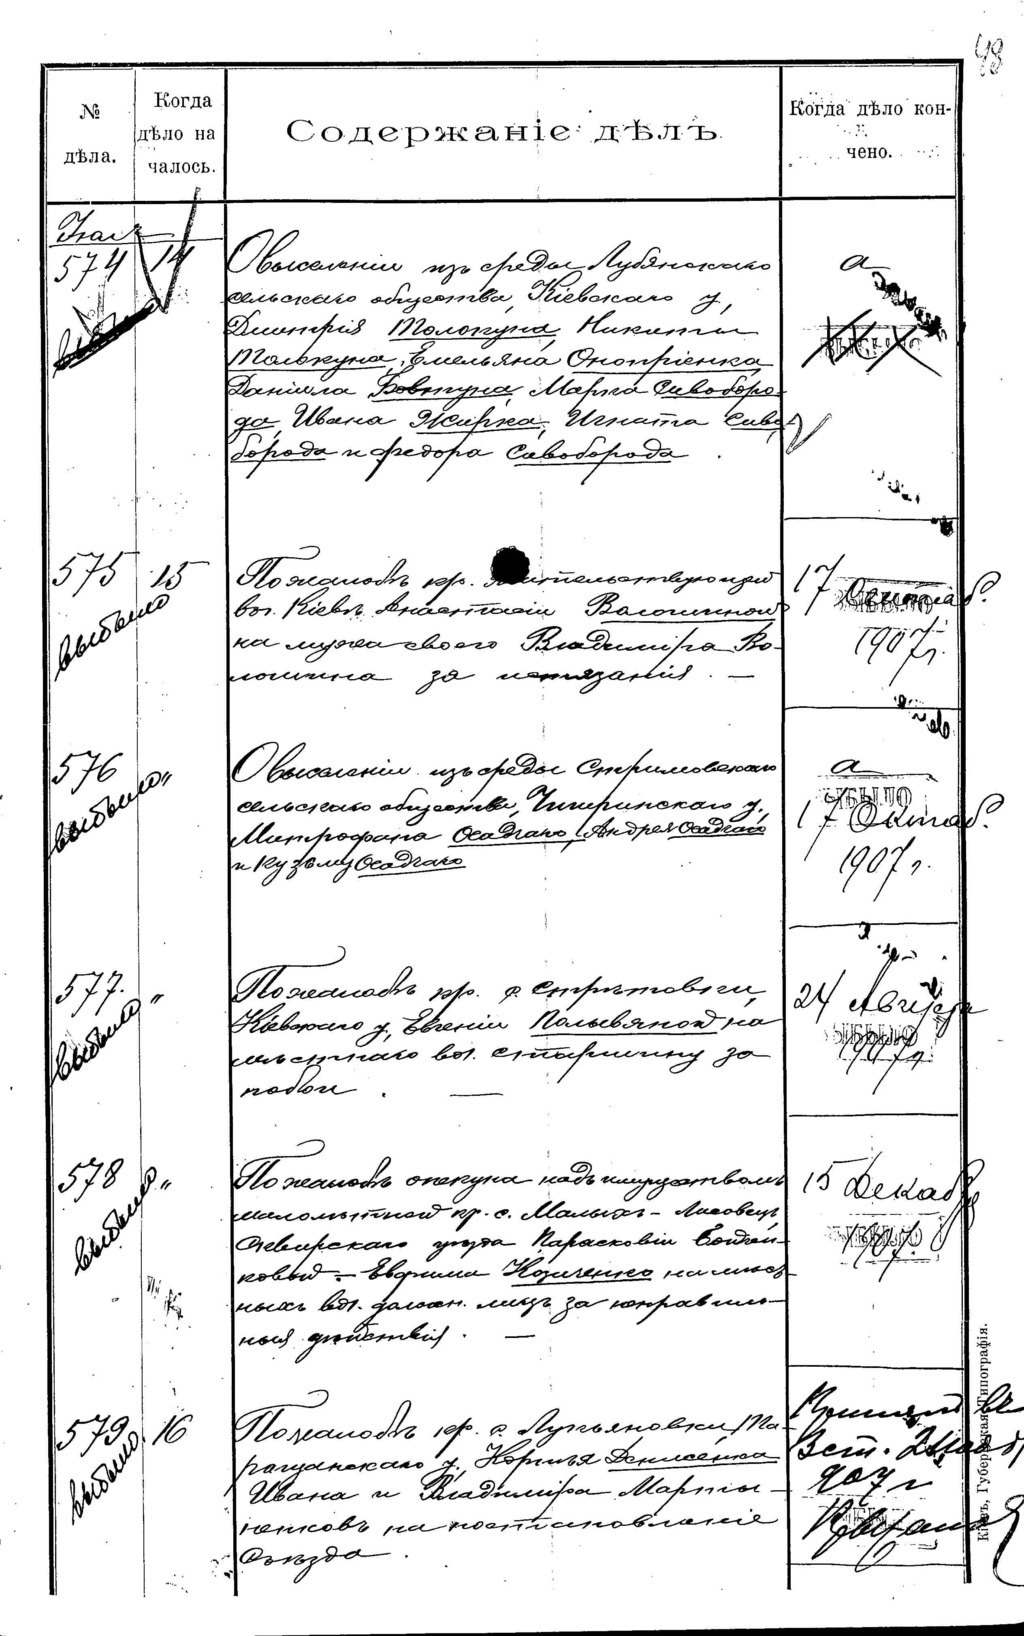 48
№ дѣла.
Когда дѣло на чалось.
Содержаніе дѣлъ.
Когда дѣло кон-
чено.
574 14
О выселеніи изъ среды Лубянскаго
сельскаго общества, Кіевскаго у,
Дмитрія Толокуна, Никиты
Толокуна, Емельяна Оноприенка,
Даніила Ковтуна, Марка Сивоборо-
да, Ивана Жирка, Игната Сиво
борода и Федора Сивоборода.
575 15
выбыло
По жалобѣ кр. жительствующей
вог. Кіевѣ Анастасіи Волошиной
на мужа своего Владиміра Во-
лошина за истязанія. —
17 Октяб.
1907 г.
576 "
выбыло
О выселеніи изъ среды Стримовскаго
сельскаго общества, Чигиринскаго у,
Митрофана Осадчаго, Андрея Осадчаго
и Кузьму Осадчаго
17 Октяб.
1907 г.
577. "
выбыло
По жалобѣ кр. с.
Кіевскаго у, Евгеніи на
мѣстнаго вол. старшину за
побои. —
24 Августа
1907 г.
578 "
выбыло
По жалобѣ опекуна надъ имуществомъ
малолѣтней кр. с. Малыхъ-Лисовец
Сквирскаго уѣзда Парасковіи
ковой - Евфима на мѣст
ныхъ вол. должн. лицъ за неправиль-
ныя дѣйствія. —
15 Декаб
1907
579 16
выбыло
По жалобѣ кр. с. Лукьяновки, Та-
ращанскаго у, Корнѣя Денисенка
Ивана и Владиміра Марты-
ненковъ на постановленіе
Съѣзда.
907 г
Кіевъ, Губернская Типографія.